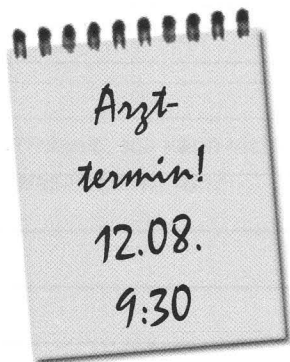 Arzt-
termin!
12.08.
9:30